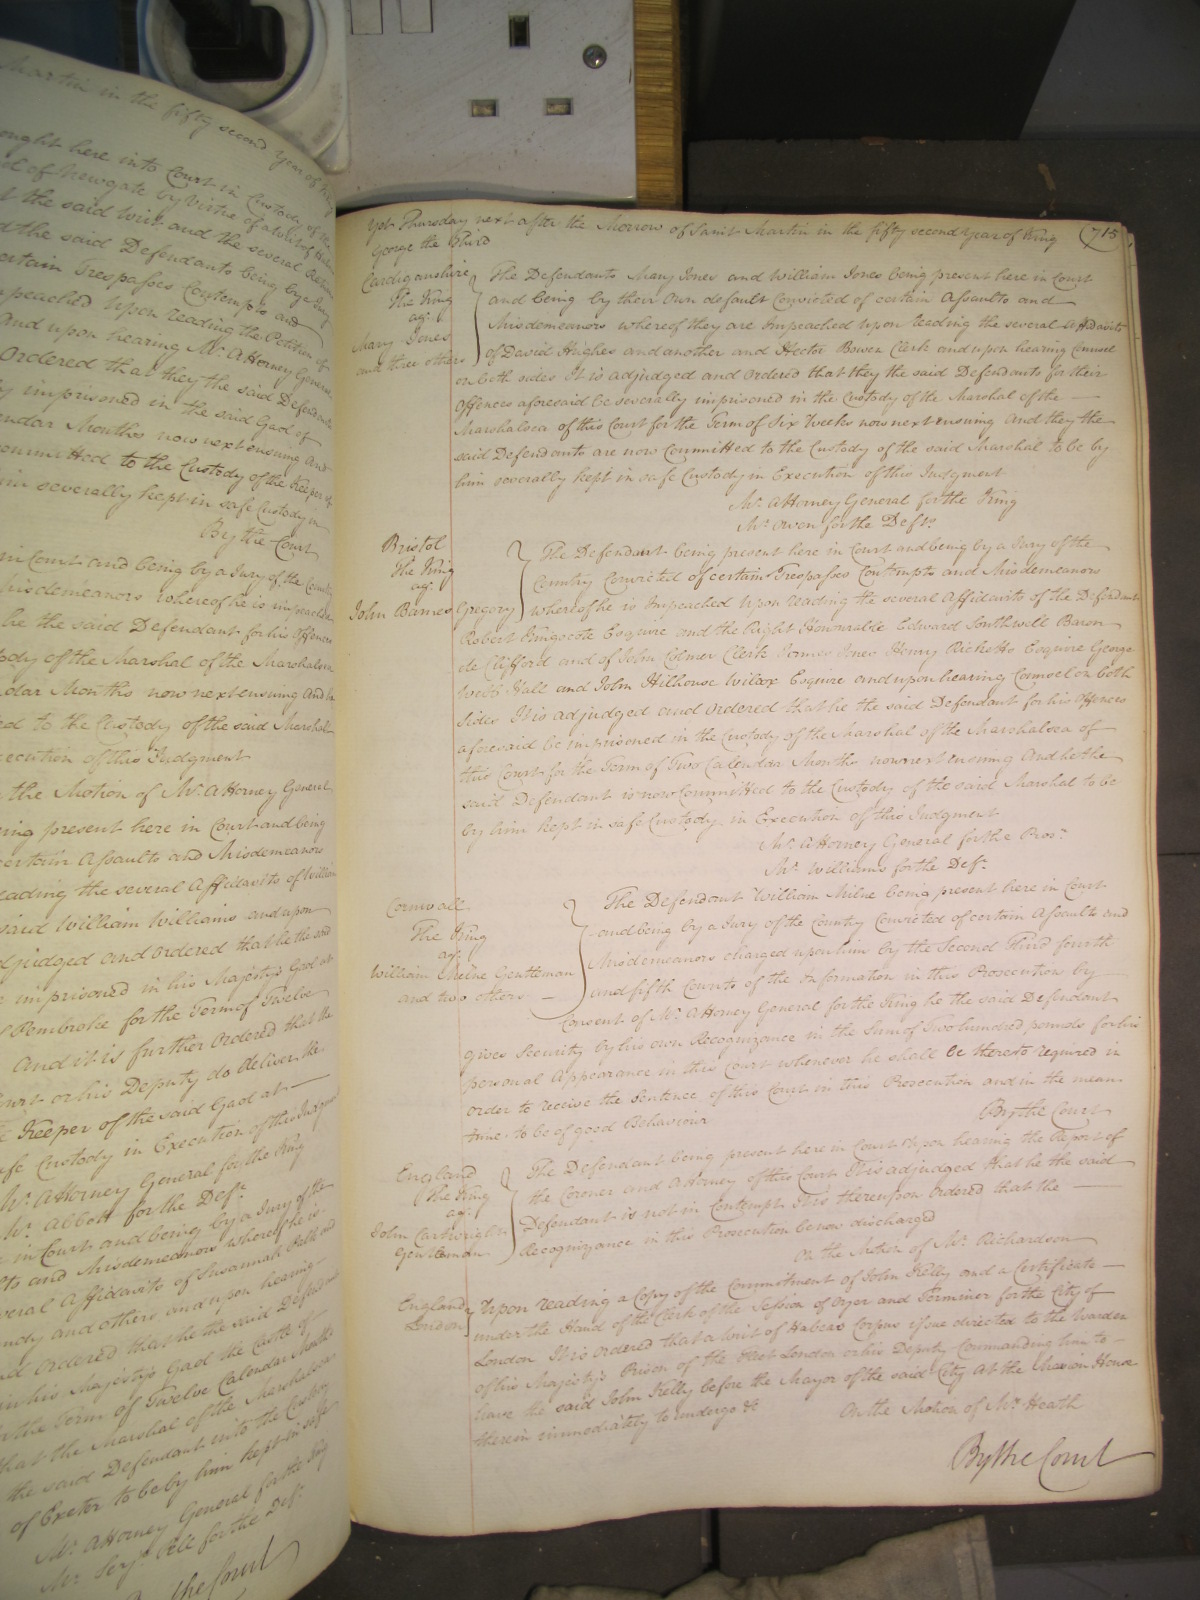 Martin in the fifty second Year of King
ought here into Court in Custody of the
of Newgate by virtue of a Writ of Habeas
the said Writ and the several
the said Defendants being by a Jury
certain Trespasses Contempts and
mpeached Upon reading the Petition of
And upon hearing Mr. Attorney General
Ordered that they the said Defendants
imprisoned in the said Gaol of
endar Months now next ensuing And
committed to the Custody of the Keeper of
in severally kept in safe Custody in
By the Court
in Court and being by a Jury of the Country
Misdemeanors whereof he is impeached
he the said Defendant for his Offences
ody of the Marshal of the Marshalsea
dar Months now next ensuing And he
ed to the Custody of the said Marshal
ecution of this Judgment
the Motion of Mr. Attorney General
eing present here in Court and being
certain Assaults and Misdemeanors
eading the several Affidavits of William
said William Williams and upon
djudged and ordered that he the said
imprisoned in his Majestys Gaol at
Pembroke for the Term of Twelve
And it is further Ordered that the
ourt or his Deputy do deliver the
Keeper of the said Gaol at
afe Custody in Execution of this Judgment
Mr. Attorney General for the King
Mr. Abbott for the Deft.
in Court and being by a Jury of the
lts and Misdemeanors whereof he is
veral Affidavits of Susannah
and others and upon hearing
nd ordered that he the said Defendant
in his Majestys Gaol the Castle of
the Term of Twelve Calendar Months
that the Marshal of the Marshalsea
the said Defendant into the Custody
of Exeter to be by him kept in safe
Mr. Attorney General for the King
Mr. Serjt. Pell for the Deft.
By the Court
Yet Thursday next after the Morrow of Saint Martin in the fifty second Year of King
George the Third
715
Cardiganshire
The King
agt.
Mary Jones
and three others
The Defendants Mary Jones and William Jones being present here in Court
and being by their own default Convicted of certain Assaults and
Misdemeanors whereof they are Impeached upon reading the several Affidavits
of David Hughes and another and Hector Bowen Clerk and upon hearing Counsel
on both sides It is adjudged and ordered that they the said Defendants for their
Offences aforesaid be severally imprisoned in the Custody of the Marshal of the
Marshalsea of this Court for the Term of Six Weeks now next ensuing And they the
said Defendants are now Committed to the Custody of the said Marshal to be by
him severally kept in safe Custody in Execution of this Judgment
Mr. Attorney General for the King
Mr. Owen for the Defts.
Bristol
The King
agt.
John Barnes Gregory
The Defendant being present here in Court and being by a Jury of the
Country Convicted of certain Trespasses Contempts and Misdemeanors
whereof he is Impeached Upon reading the several Affidavits of the Defendant
Robert Kingscote Esquire and the Right Honourable Edward Southwell Baron
de Clifford and of John Colmer Clerk James Jones Henry Ricketts Esquire George
Webb Hall and John Hilhouse Wilcox Esquire and upon hearing Counsel on both
sides It is adjudged and ordered that he the said Defendant for his Offences
aforesaid be imprisoned in the Custody of the Marshal of the Marshalsea of
this Court for the Term of Two Calendar Months now next ensuing And he the
said Defendant is now Committed to the Custody of the said Marshal to be
by him kept in safe Custody in Execution of this Judgment
Mr. Attorney General for the Pros.r
Mr. Williams for the Deft.
Cornwall
The King
agt.
William Milne Gentleman
and two others
The Defendant William Milne being present here in Court
and being by a Jury of the Country Convicted of certain Assaults and
Misdemeanors charged upon him by the Second Third fourth
and fifth Counts of the Information in this Prosecution by
Consent of Mr. Attorney General for the King he the said Defendant
gives Security by his own Recognizance in the Sum of Two hundred pounds for his
personal Appearance in this Court whenever he shall be thereto required in
order to receive the Sentence of this Court in this Prosecution and in the mean
time to be of good Behaviour
By the Court
England
The King
agt.
John Cartwright
Gentleman
The Defendant being present here in Court Upon hearing the Report of
the Coroner and Attorney of this Court It is adjudged that he the said
Defendant is not in Contempt It is thereupon ordered that the
Recognizance in this Prosecution be now discharged
On the Motion of Mr. Richardson
England
London
Upon reading a Copy of the Commitment of John Kelly and a Certificate
under the Hand of the Clerk of the Session of Oyer and Terminer for the City of
London It is ordered that a Writ of Habeas Corpus issue directed to the Warden
of his Majesty's Prison of the Fleet London or his Deputy Commanding him to
have the said John Kelly before the Mayor of the said City At the Mansion House
therein immediately to undergo &c
On the Motion of Mr. Heath
By the Court